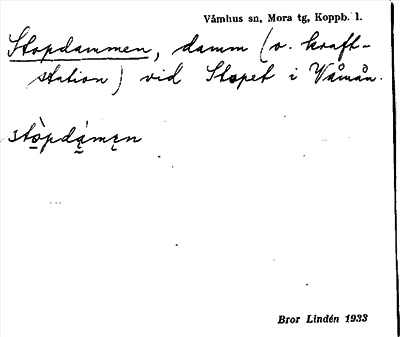 Våmhus sn, Mora tg, Koppb. l.
Stopdammen, damm (o. kraft-
station) vid Stopet i Våmån.
stòpdámen
Bror Lindén 1933